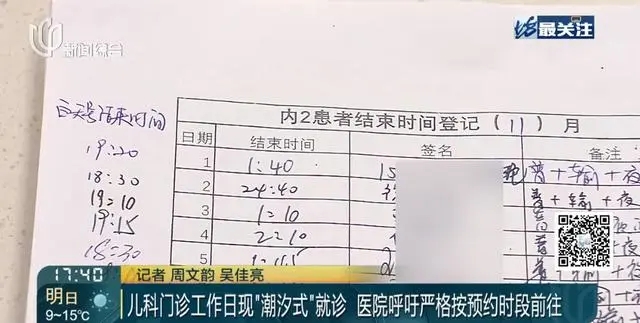 新闻综合
最关注
白天号结束时间
19:20
18:30
19:10
19:15
18:30
内2患者结束时间登记(11)月
日期 结束时间 签名 备注
1 1:40 普+输+夜
2 24:40 普+输+夜
3 1:10
4 2:10
5
17:40
记者 周文韵 吴佳亮
明日
9~15℃
儿科门诊工作日现"潮汐式"就诊 医院呼吁严格按预约时段前往